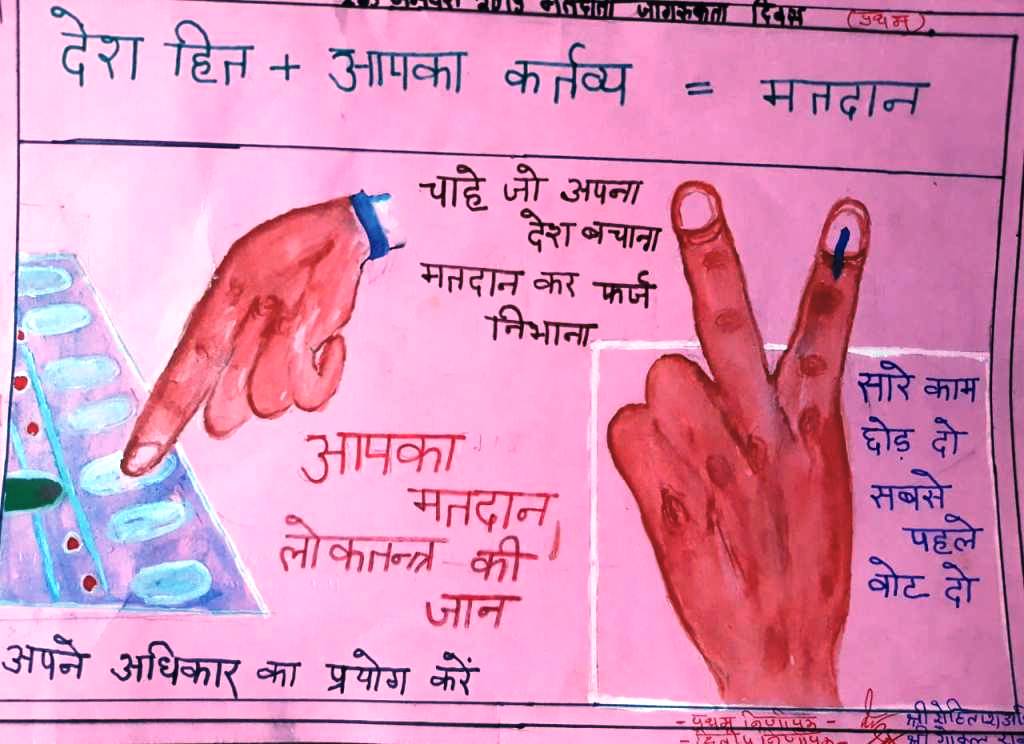 मतदाता जागरूकता दिवस (प्रथम)
देश हित + आपका कर्तव्य = मतदान
चाहे जो अपना
देश बचाना
मतदान कर फर्ज
निभाना
आपका
मतदान
लोकतन्त्र की
जान
सारे काम
छोड़ दो
सबसे
पहले
वोट दो
अपने अधिकार का प्रयोग करें
- प्रथम निर्णायक - श्री
- द्वितीय निर्णायक श्री गोकुल